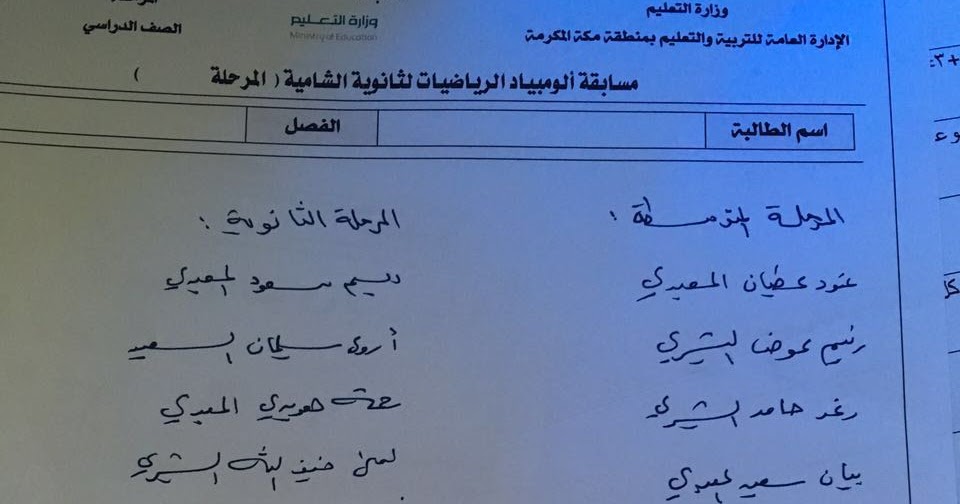 وزارة التعليم
الإدارة العامة للتربية والتعليم بمنطقة مكة المكرمة
وزارة التعليم
Ministry of Education
الصف الدراسي
مسابقة ألومبياد الرياضيات لثانوية الشامية ( المرحلة )
اسم الطالبة
الفصل
المرحلة المتوسطة :
عنود عطيان المعبدي
رنيم عوض البشيري
رغد حامد البشيري
بيان سعيد المعبدي
المرحلة الثانوية :
سعود المعبدي
أروى سليمان السعيد
المعبدي
ضيف الله البشيري